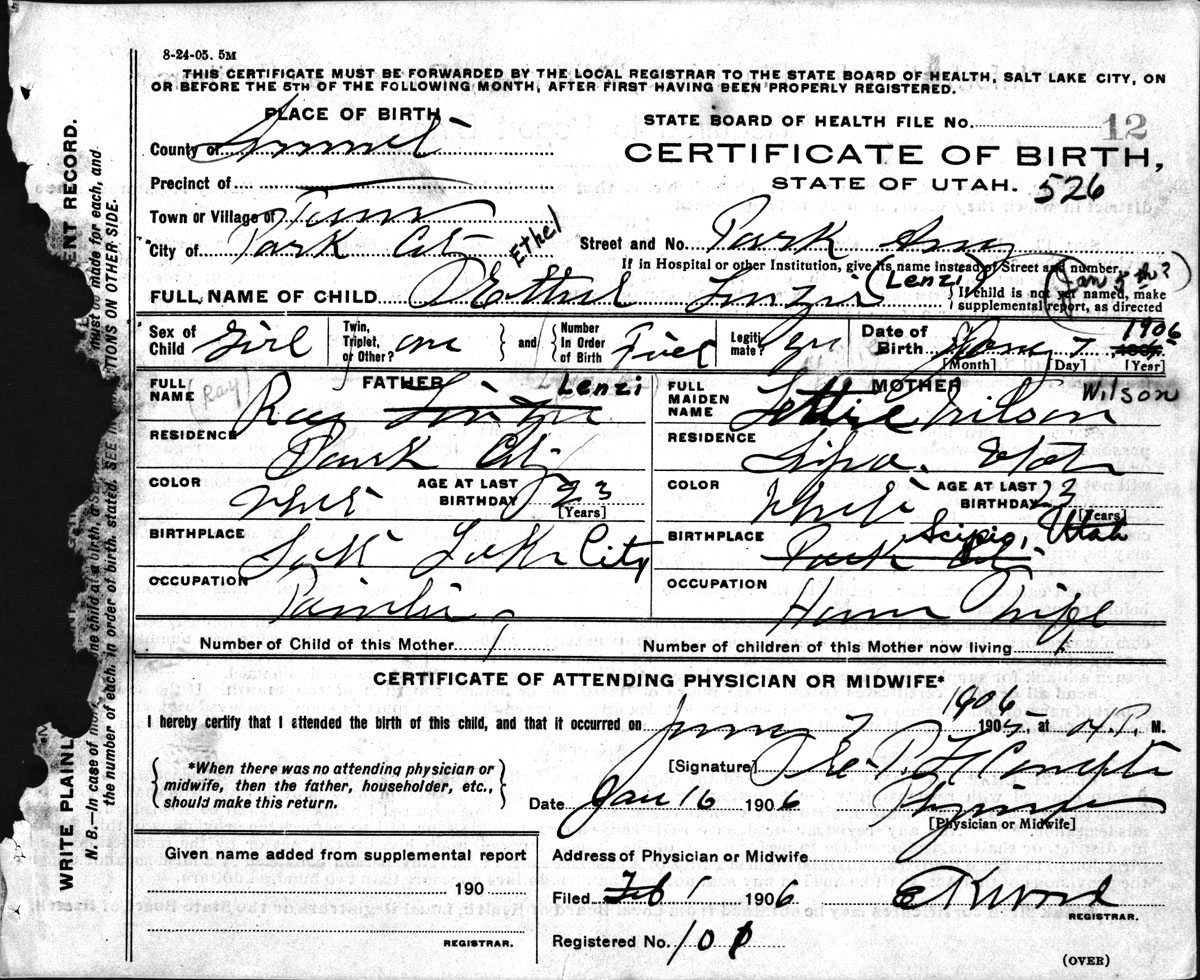 8-24-05. 5M
THIS CERTIFICATE MUST BE FORWARDED BY THE LOCAL REGISTRAR TO THE STATE BOARD OF HEALTH, SALT LAKE CITY, ON
OR BEFORE THE 5TH OF THE FOLLOWING MONTH, AFTER FIRST HAVING BEEN PROPERLY REGISTERED.
PLACE OF BIRTH
STATE BOARD OF HEALTH FILE No. 12
County of Summit
CERTIFICATE OF BIRTH,
Precinct of
STATE OF UTAH. 526
Town or Village of
City of Park City Street and No. Park Ave
Ethel
If in Hospital or other Institution, give its name instead of Street and number.
(Lenzi) (Jan 5th?)
FULL NAME OF CHILD Ethel
If child is not yet named, make
supplemental report, as directed
Sex of Child Girl Twin, Triplet, or Other? one and Number In Order of Birth First Legiti mate? yes Date of Birth Jany 7 1906
[Month] [Day] [Year]
(Ray)
FULL NAME FATHER Ray Lenzi
FULL MAIDEN NAME MOTHER Lettie Wilson Wilson
RESIDENCE Park City
RESIDENCE Utah
COLOR White AGE AT LAST BIRTHDAY 23 [Years]
COLOR White AGE AT LAST BIRTHDAY 23 [Years]
BIRTHPLACE Salt Lake City
BIRTHPLACE Park City Scipio, Utah
OCCUPATION
OCCUPATION House Wife
Number of Child of this Mother 1 Number of children of this Mother now living 1
CERTIFICATE OF ATTENDING PHYSICIAN OR MIDWIFE*
1906
I hereby certify that I attended the birth of this child, and that it occurred on 7 1905, at M.
*When there was no attending physician or
midwife, then the father, householder, etc.,
should make this return.
[Signature]
Date Jan 16 1906 Physician
[Physician or Midwife]
Given name added from supplemental report
190
REGISTRAR.
Address of Physician or Midwife
Filed Feb 1 1906
REGISTRAR.
Registered No. 10
(OVER)
WRITE PLAINL
ENT RECORD.
N. B.—In case of mo ne child at a birth, a se must be made for each, and
the number of each, in order of birth, stated. SEE TIONS ON OTHER SIDE.